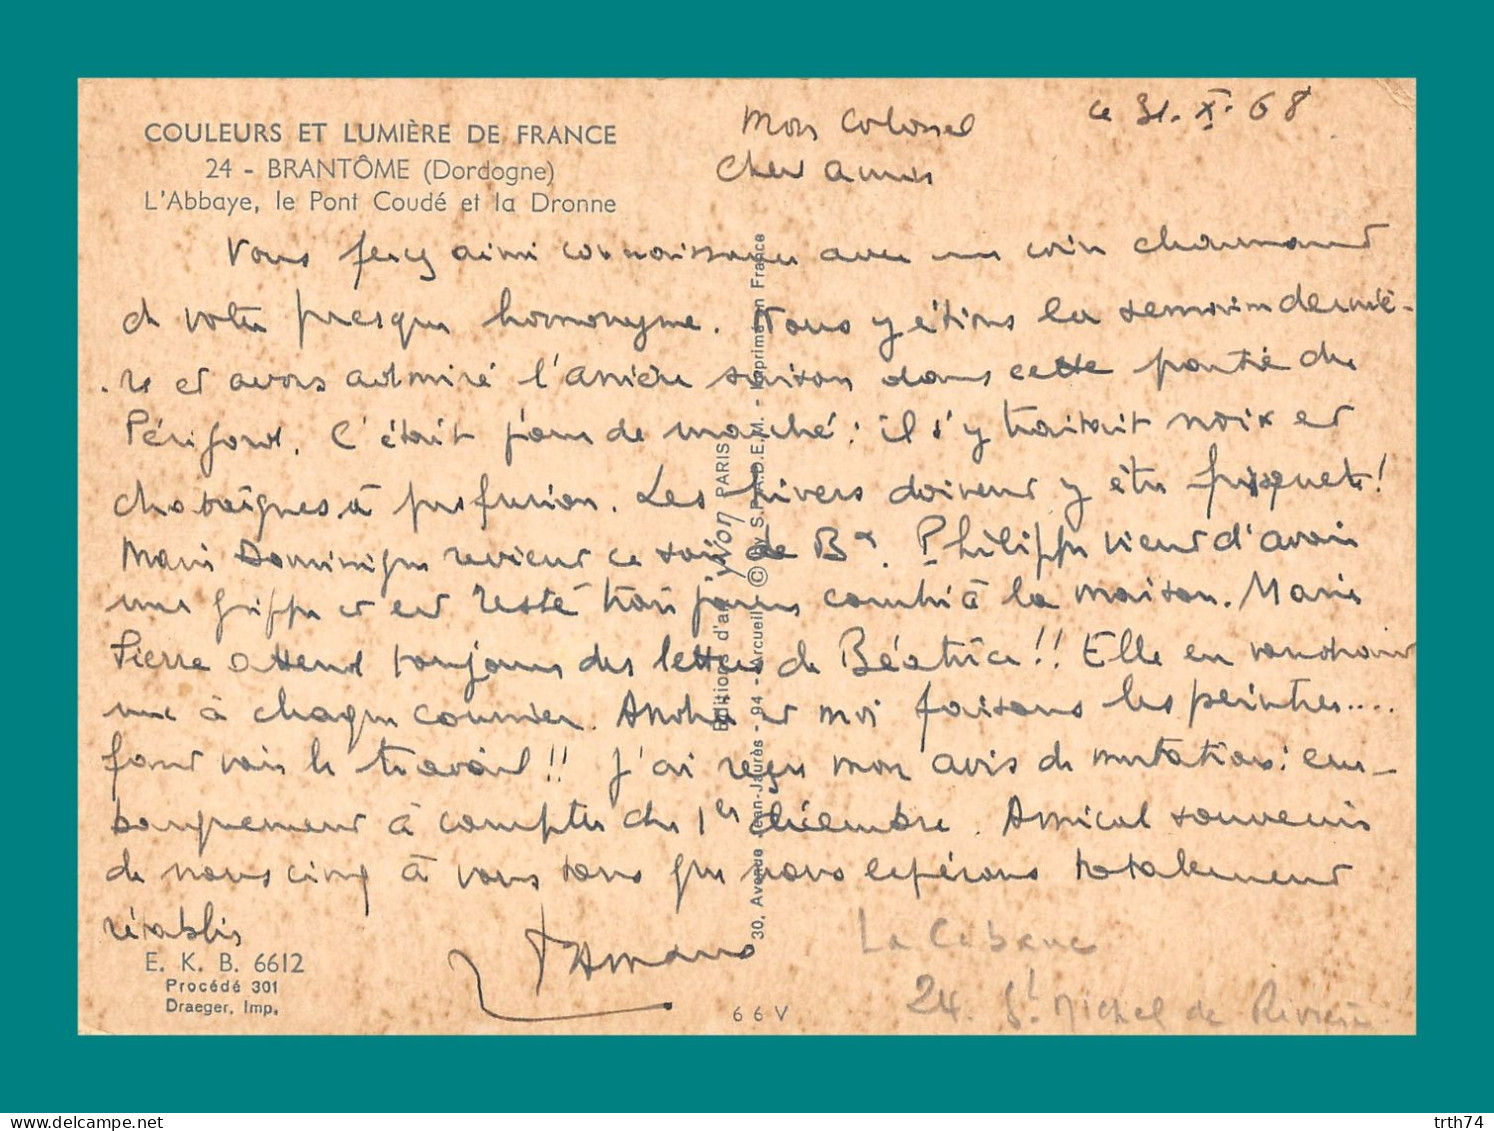 COULEURS ET LUMIÈRE DE FRANCE
24 - BRANTÔME (Dordogne)
L'Abbaye, le Pont Coudé et la Dronne
ce 31. X. 68
Mon Colonel
Chers amis
Vous ferez ainsi connaissance avec un coin charmant
de votre presque homonyme. Nous y étions la semaine derniè-
re et avons admiré l'arrière saison dans cette partie du
Périgord. C'était jour de marché : il s'y traitait noix et
chataîgnes à profusion. Les hivers doivent y être frisquets !
Marie Dominique revient ce soir de Bx. Philippe vient d'avoir
une grippe et est resté trois jours couché à la maison. Marie
Pierre attend toujours des lettres de Béatrice !! Elle en voudrait
une à chaque courrier. et moi faisons les peintres....
pour voir le travail !! J'ai reçu mon avis de mutation : em-
barquement à compter du 1er décembre. Amical souvenir
de nous cinq à vous tous que nous espérons totalement
rétablis
La Cabane
24. St Michel de Rivière
E. K. B. 6612
Procédé 301
Draeger, Imp.
66 V
Editions d'art yvon PARIS
30, Avenue Jean-Jaurès - 94 - Arcueil - © by S.P.A.D.E.M. - Imprimé en France
delcampe.net
trth74